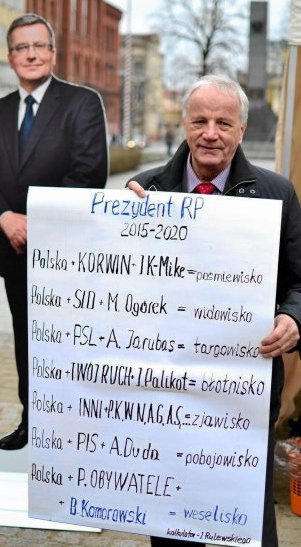 Prezydent RP
2015-2020
Polska + KORWIN + J K-Mike = pośmiewisko
Polska + SLD + M. Ogórek = widowisko
Polska + PSL + A. Jarubas = targowisko
Polska + TWÓJ RUCH + J. Palikot = błotnisko
Polska + INNI + P,K,W,N,A,G,A,S,... = zjawisko
Polska + PIS + A. Duda = pobojowisko
Polska + P. OBYWATELE +
+ B. Komorowski = weselisko
kalkulator - J. Rulewskiego